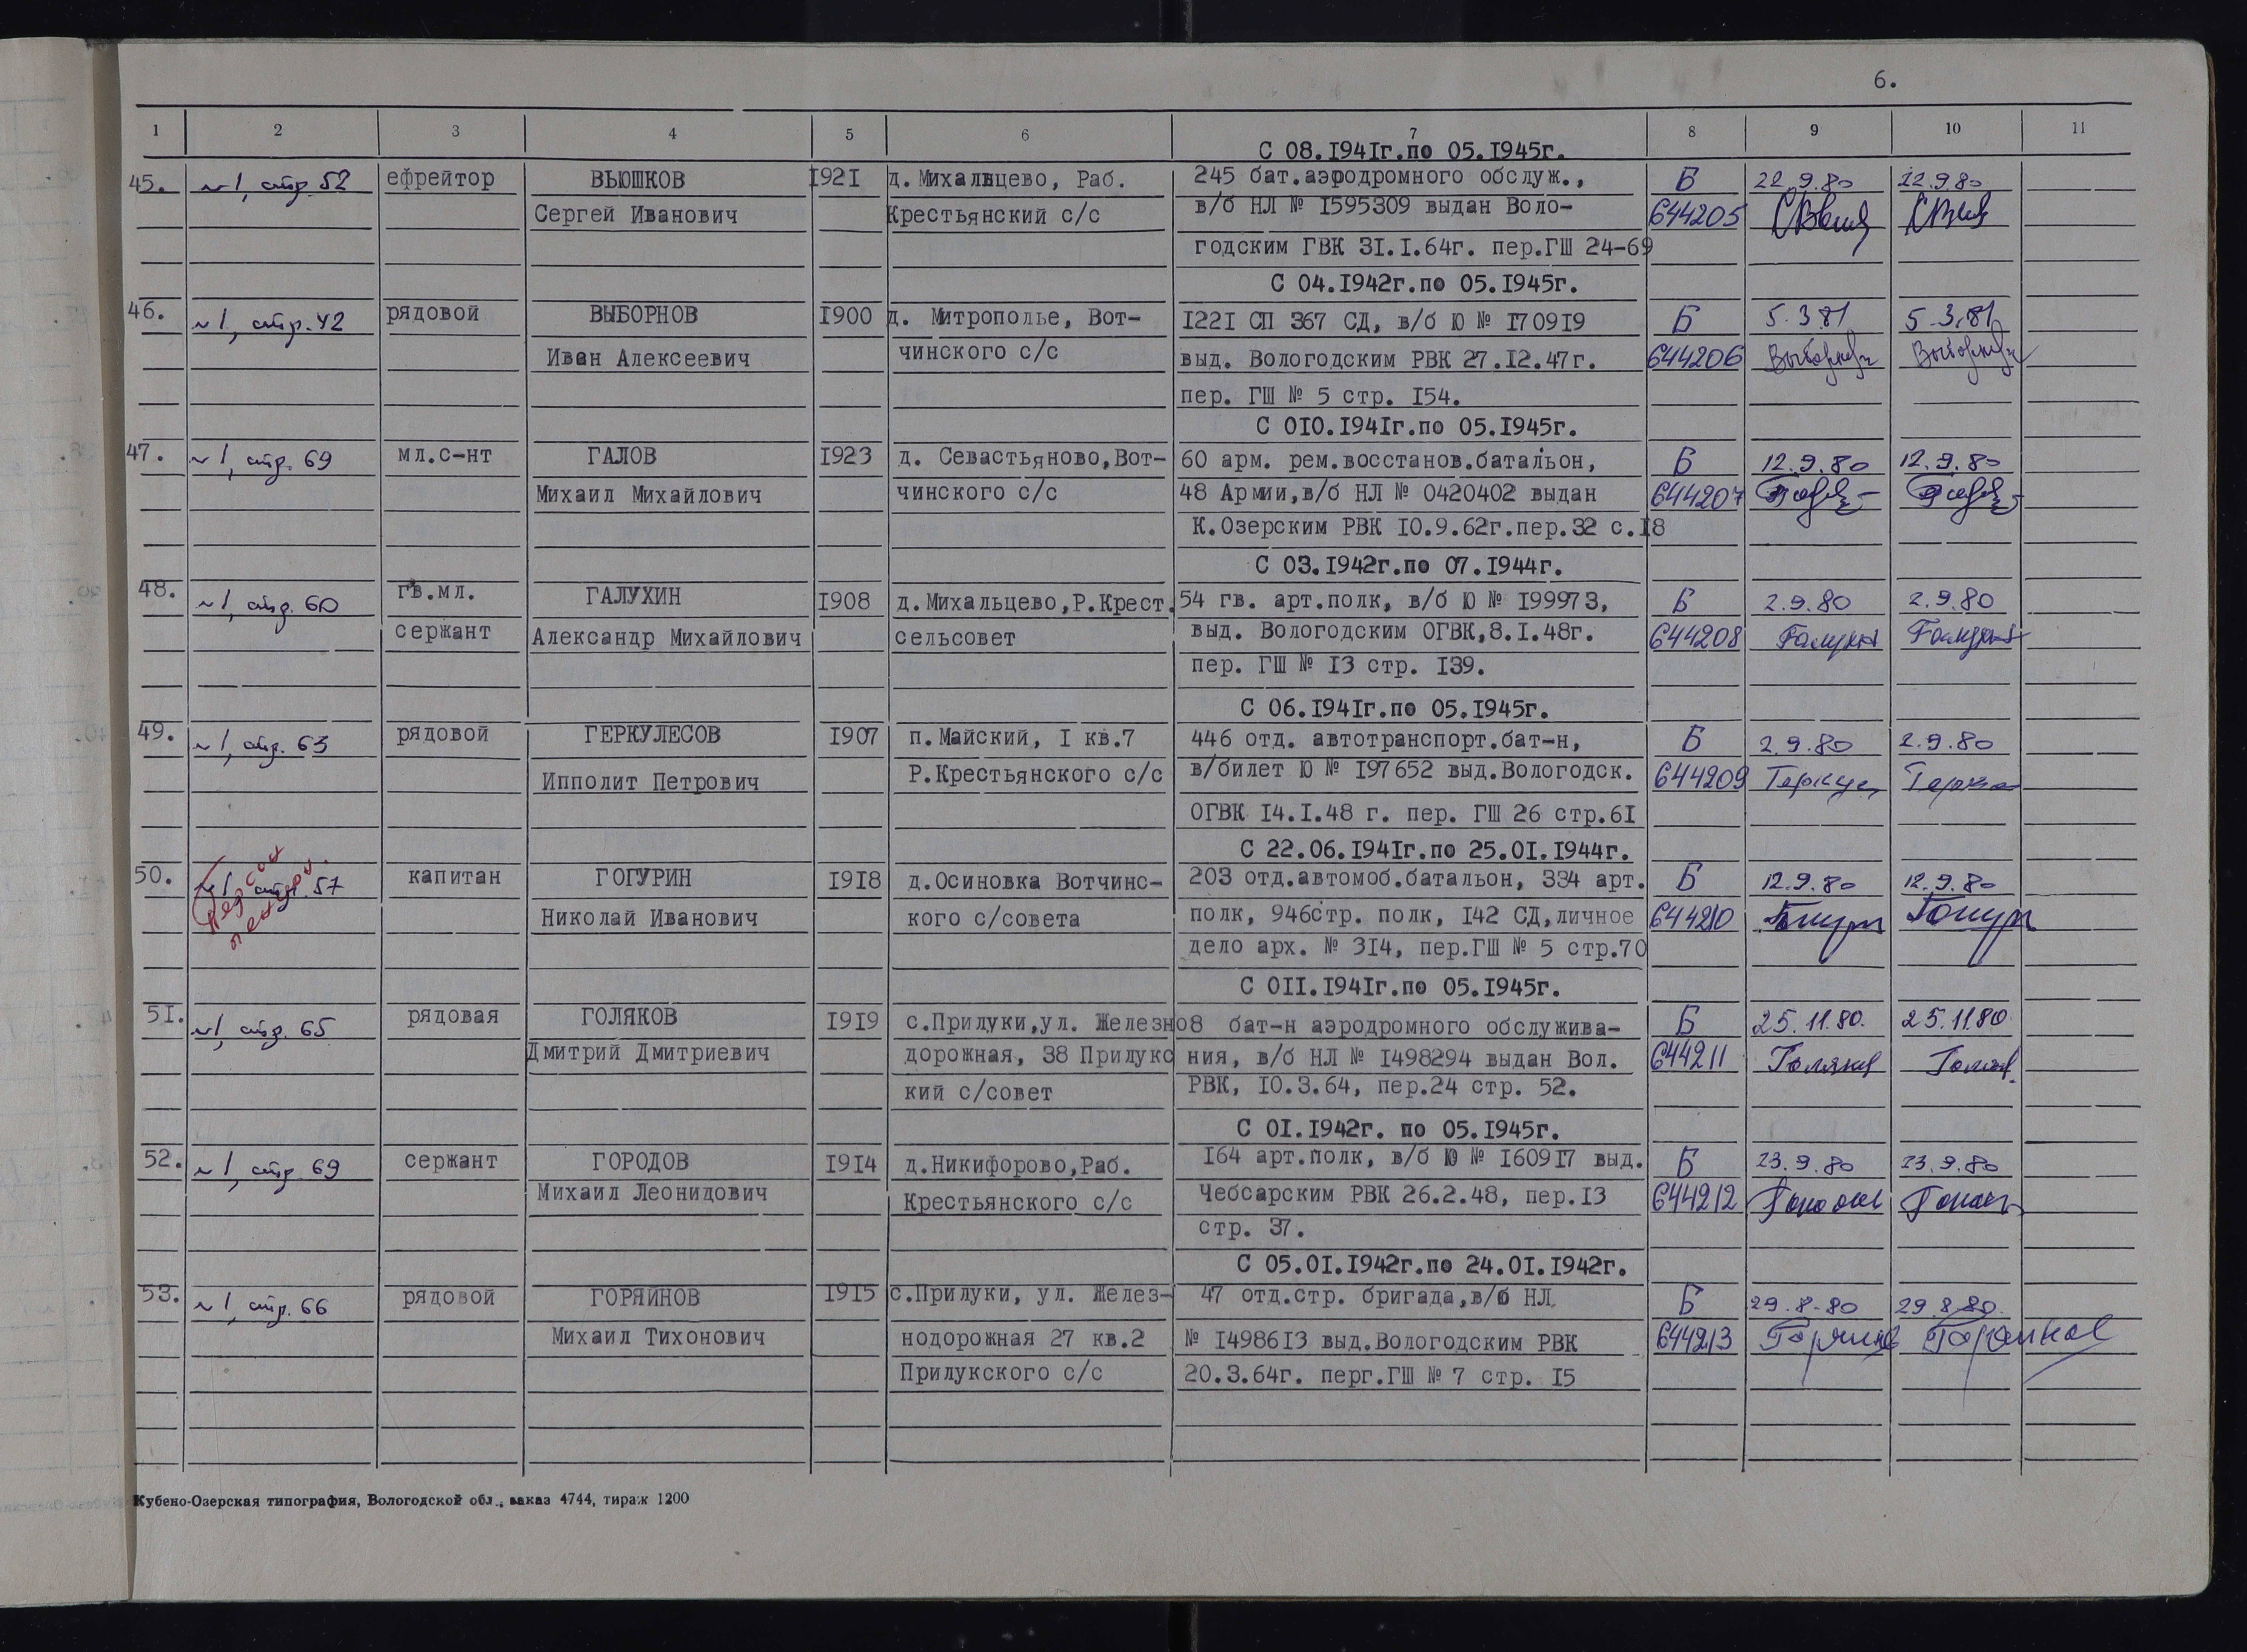 6.
1 2 3 4 5 6 7 8 9 10 11
С 08.1941г.по 05.1945г.
45. №1, стр. 52 ефрейтор ВЬЮШКОВ 1921 д. Михальцево, Раб. 245 бат.аэродромного обслуж., Б 22.9.80 22.9.80
Сергей Иванович Крестьянский с/с в/б НЛ № 1595309 выдан Воло- 644205
годским ГВК 31.1.64г. пер.ГШ 24-69
С 04.1942г.по 05.1945г.
46. №1, стр. 42 рядовой ВЫБОРНОВ 1900 д. Митрополье, Вот- 1221 СП 367 СД, в/б Ю № 170919 Б 5.3.81 5.3.81
Иван Алексеевич чинского с/с выд. Вологодским РВК 27.12.47г. 644206
пер. ГШ № 5 стр. 154.
С 010.1941г.по 05.1945г.
47. №1, стр. 69 мл.с-нт ГАЛОВ 1923 д. Севастьяново,Вот- 60 арм. рем.восстанов.батальон, Б 12.9.80 12.9.80
Михаил Михайлович чинского с/с 48 Армии,в/б НЛ № 0420402 выдан 644207
К.Озерским РВК 10.9.62г.пер.32 с.18
С 03.1942г.по 07.1944г.
48. №1, стр. 60 гв.мл. ГАЛУХИН 1908 д.Михальцево,Р.Крест. 54 гв. арт.полк, в/б Ю № 199973, Б 2.9.80 2.9.80
сержант Александр Михайлович сельсовет выд. Вологодским ОГВК,8.1.48г. 644208
пер. ГШ № 13 стр. 139.
С 06.1941г.по 05.1945г.
49. №1, стр. 63 рядовой ГЕРКУЛЕСОВ 1907 п.Майский, 1 кв.7 446 отд. автотранспорт.бат-н, Б 2.9.80 2.9.80
Ипполит Петрович Р.Крестьянского с/с в/билет Ю № 197652 выд.Вологодск. 644209
ОГВК 14.1.48 г. пер. ГШ 26 стр.61
С 22.06.1941г.по 25.01.1944г.
50. №1 стр. 57 капитан ГОГУРИН 1918 д.Осиновка Вотчинс- 203 отд.автомоб.батальон, 334 арт. Б 12.9.80 12.9.80
Николай Иванович кого с/совета полк, 946стр. полк, 142 СД,личное 644210
дело арх. № 314, пер.ГШ № 5 стр.70
С 011.1941г.по 05.1945г.
51. №1, стр. 65 рядовая ГОЛЯКОВ 1919 с.Прилуки,ул. Железно 8 бат-н аэродромного обслужива- Б 25.11.80. 25.11.80
Дмитрий Дмитриевич дорожная, 38 Прилукс ния, в/б НЛ № 1498294 выдан Вол. 644211
кий с/совет РВК, 10.3.64, пер.24 стр. 52.
С 01.1942г. по 05.1945г.
52. №1, стр. 69 сержант ГОРОДОВ 1914 д.Никифорово,Раб. 164 арт.полк, в/б Ю № 160917 выд. Б 23.9.80 23.9.80
Михаил Леонидович Крестьянского с/с Чебсарским РВК 26.2.48, пер.13 644212
стр. 37.
С 05.01.1942г.по 24.01.1942г.
53. №1, стр. 66 рядовой ГОРЯЙНОВ 1915 с.Прилуки, ул. Желез- 47 отд.стр. бригада,в/б НЛ Б 29.8.80 29.8.80.
Михаил Тихонович нодорожная 27 кв.2 № 1498613 выд.Вологодским РВК 644213
Прилукского с/с 20.3.64г. перг.ГШ № 7 стр. 15
Кубено-Озерская типография, Вологодской обл., заказ 4744, тираж 1200